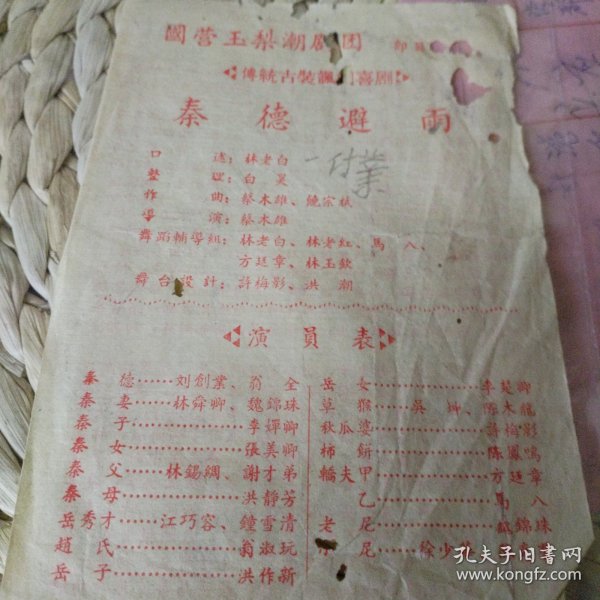 國营玉梨潮剧团 印
傳統古裝諷刺喜剧
秦德避雨
口述：林老白
整理：白昊
作曲：蔡木雄、饒宗栻
導演：蔡木雄
舞蹈輔導組：林老白、林老紅、馬八、
方廷章、林玉欽
舞台設計：許梅影、洪潮
一付業
演員表
秦德……刘創業、翁全
秦妻……林舜卿、魏錦珠
秦子……李嬋卿
秦女……張美卿
秦父……林錫綢、謝才弟
秦母……洪靜芳
岳秀才……江巧容、鐘雪清
趙氏……翁淑玩
岳子……洪作新
岳女……李楚卿
草猴……吳坤、陈木龍
秋瓜婆……許梅影
柿餅……陈鳳鳴
轎夫甲……方廷章
乙……馬八
老尼……魏錦珠
尼……徐少
孔夫子旧書网
www.kongfz.com